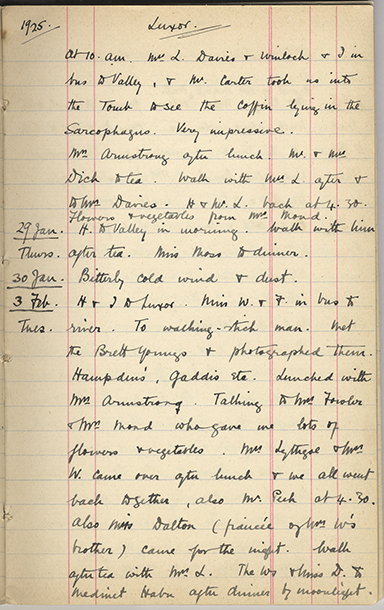 1925. Luxor.
At 10. am. Mrs L. Davies & Winlock & I in
bus to Valley, & Mr. Carter took us into
the Tomb to see the coffin lying in the
Sarcophagus. Very impressive.
Mrs Armstrong after lunch. Mr. & Mrs
Dick to tea. Walk with Mrs L. after &
to Mrs Davies. H & Mr. L. back at 4.30.
Flowers & vegetables from Mrs Mond.
29 Jan. H. to Valley in morning. Walk with him
Thurs. after tea. Miss Moss to dinner.
30 Jan. Bitterly cold wind & dust.
3 Feb. H & I to Luxor. Miss W. & F. in bus to
Tues. river. To walking-stick man. Met
the Brett Youngs & photographed them.
Hampdens', Gaddis etc. Lunched with
Mrs Armstrong. Talking to Mrs Fowler
& Mrs Mond who gave me lots of
flowers & vegetables. Mrs Lythgoe & Mrs
W. came over after lunch & we all went
back together, also Mr. Peek at 4.30.
Also Miss Dalton (fiancée of Mrs W's
brother) came for the night. Walk
after tea with Mrs L. The Ws & Miss D. to
Medinet Habu after dinner by moonlight.